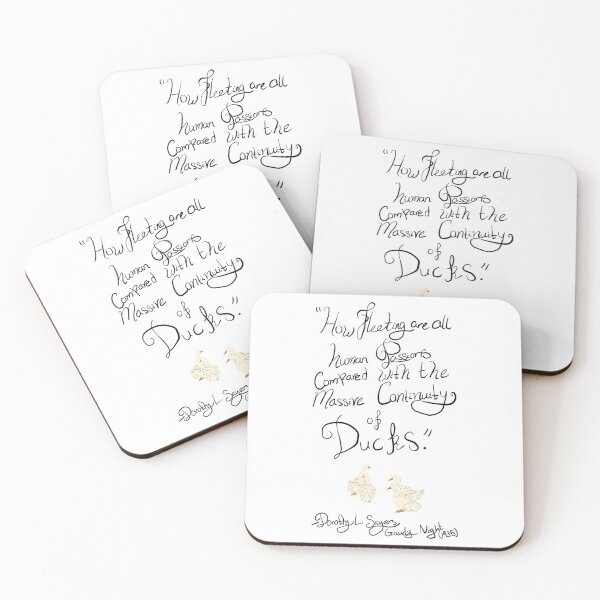 "How Fleeting are all
human Passions
Compared with the
Massive Continuity
"How Fleeting are all
human Passions
Compared with the
Massive Continuity
of
Ducks."
"How Fleeting are all
human Passions
Compared with the
Massive Continuity
of
Ducks."
Dorothy L Sayers
"How Fleeting are all
human Passions
Compared with the
Massive Continuity
of
Ducks."
Dorothy L Sayers
Gaudy Night (1935)